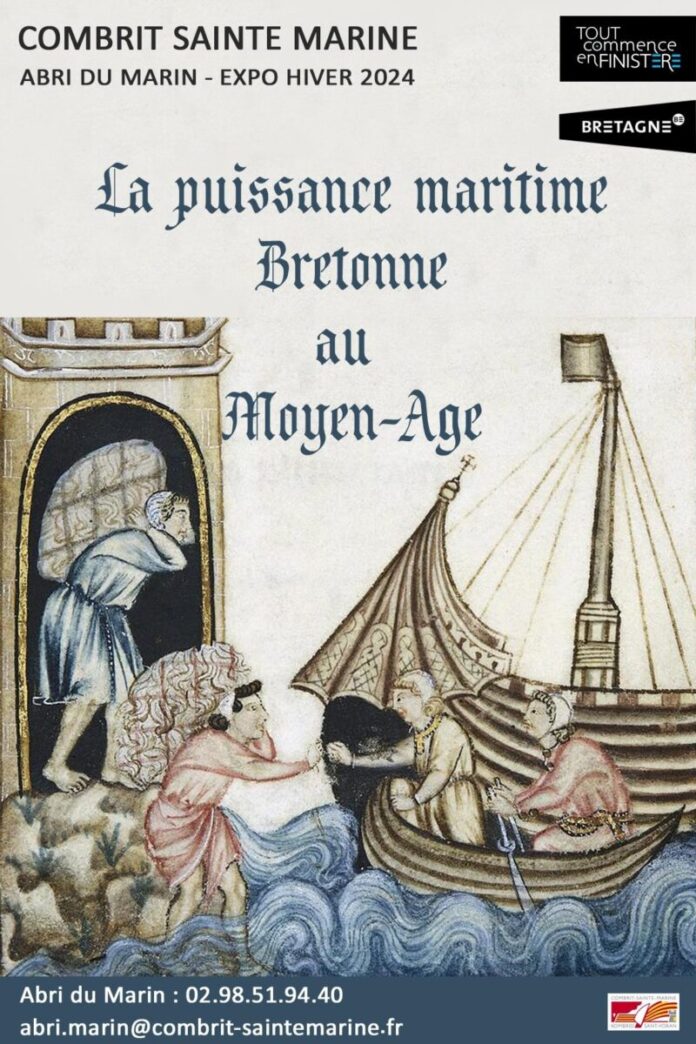 COMBRIT SAINTE MARINE
ABRI DU MARIN - EXPO HIVER 2024
TOUT
commence
enFINISTÈRE
BRETAGNE BE
La puissance maritime
Bretonne
au
Moyen-Age
Abri du Marin : 02.98.51.94.40
abri.marin@combrit-saintemarine.fr
COMBRIT-SAINTE-MARINE